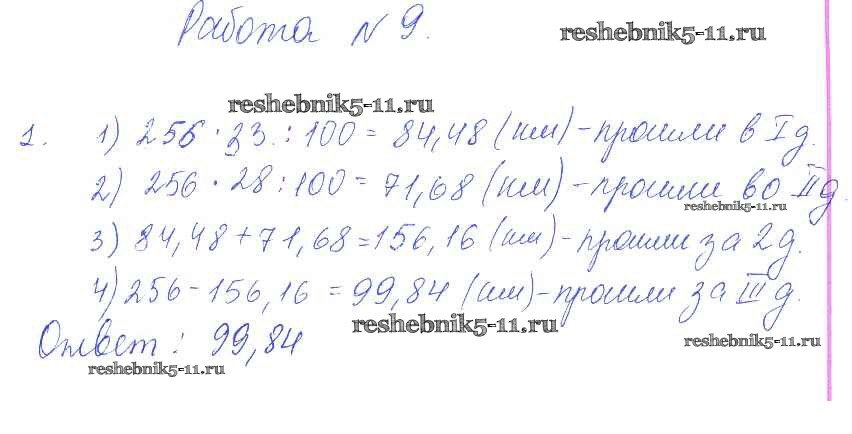 Работа N 9.
reshebnik5-11.ru
reshebnik5-11.ru
1. 1) 256 · 33 : 100 = 84,48 (км) - прошли в I д.
2) 256 · 28 : 100 = 71,68 (км) - прошли во II д.
reshebnik5-11.ru
3) 84,48 + 71,68 = 156,16 (км) - прошли за 2 д.
4) 256 - 156,16 = 99,84 (км) - прошли за III д.
reshebnik5-11.ru
Ответ: 99,84
reshebnik5-11.ru
reshebnik5-11.ru